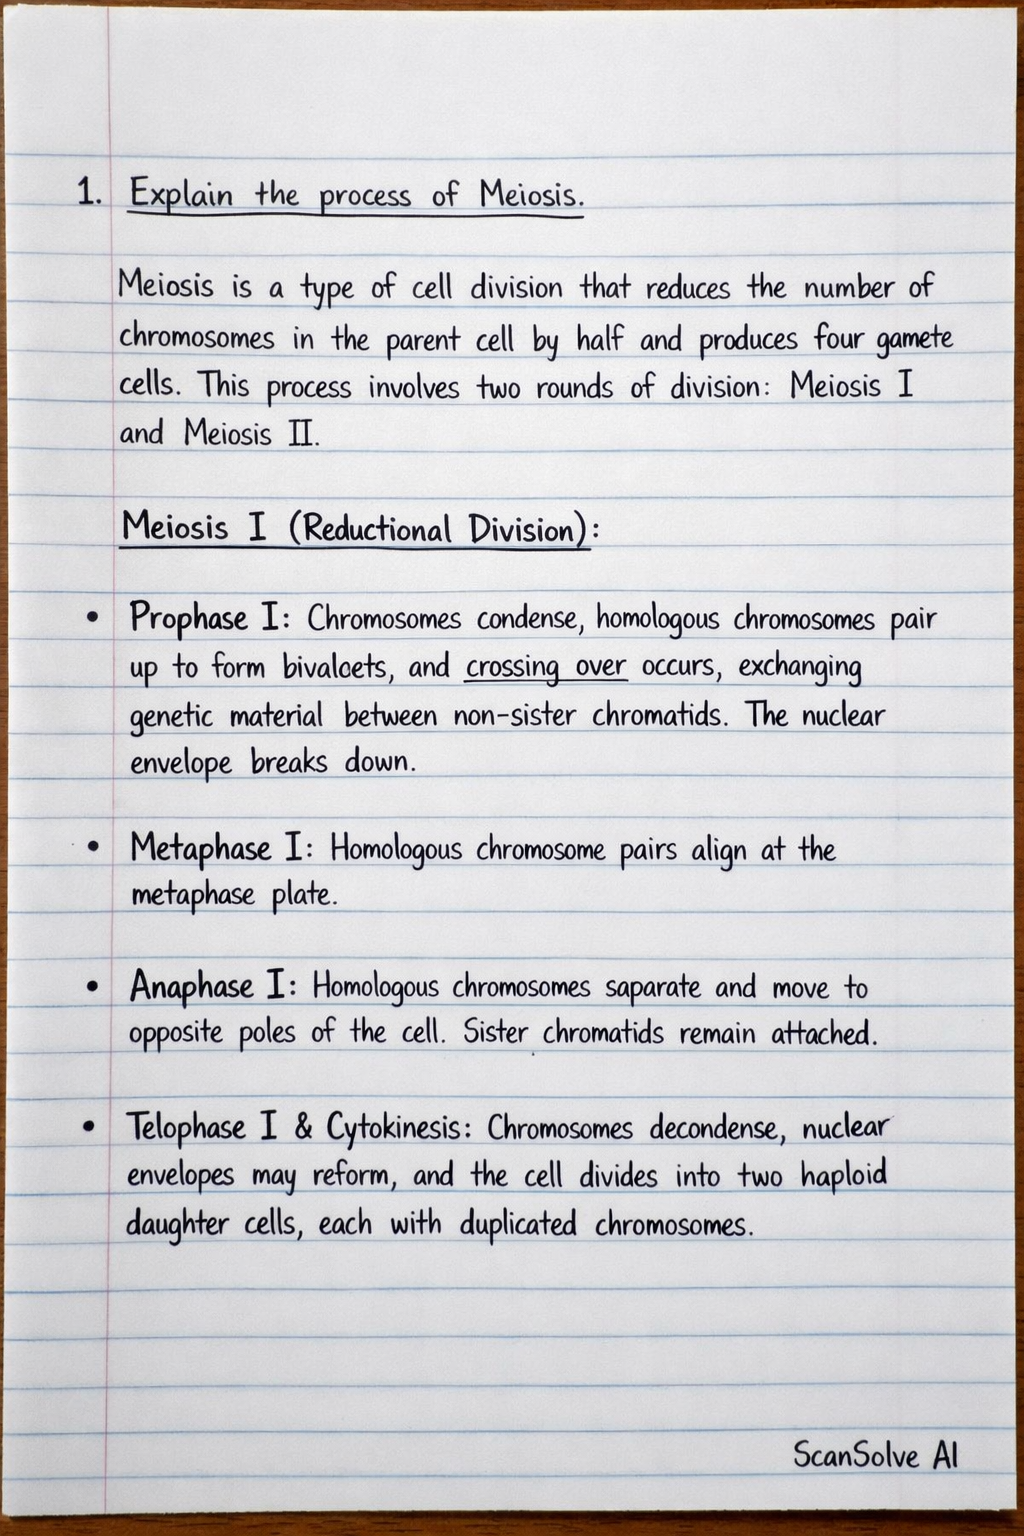 1. Explain the process of Meiosis.
Meiosis is a type of cell division that reduces the number of
chromosomes in the parent cell by half and produces four gamete
cells. This process involves two rounds of division: Meiosis I
and Meiosis II.
Meiosis I (Reductional Division):
• Prophase I: Chromosomes condense, homologous chromosomes pair
up to form bivalcets, and crossing over occurs, exchanging
genetic material between non-sister chromatids. The nuclear
envelope breaks down.
• Metaphase I: Homologous chromosome pairs align at the
metaphase plate.
• Anaphase I: Homologous chromosomes saparate and move to
opposite poles of the cell. Sister chromatids remain attached.
• Telophase I & Cytokinesis: Chromosomes decondense, nuclear
envelopes may reform, and the cell divides into two haploid
daughter cells, each with duplicated chromosomes.
ScanSolve AI